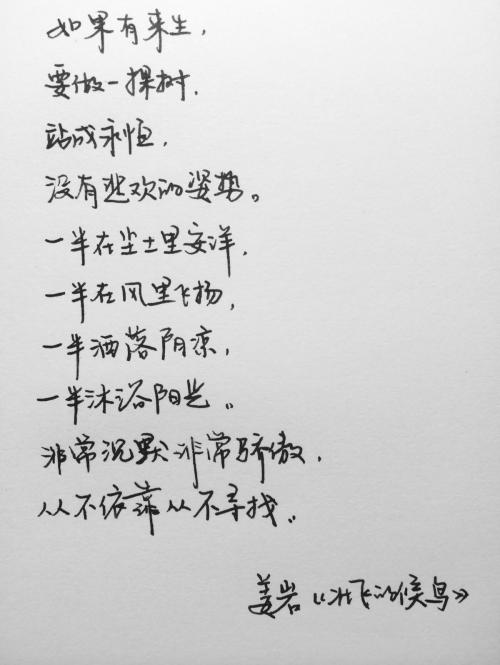 如果有来生，
要做一棵树，
站成永恒，
没有悲欢的姿势。
一半在尘土里安洋，
一半在风里飞扬，
一半洒落阴凉，
一半沐浴阳光。
非常沉默非常骄傲，
从不依靠从不寻找。
姜岩《北飞的候鸟》